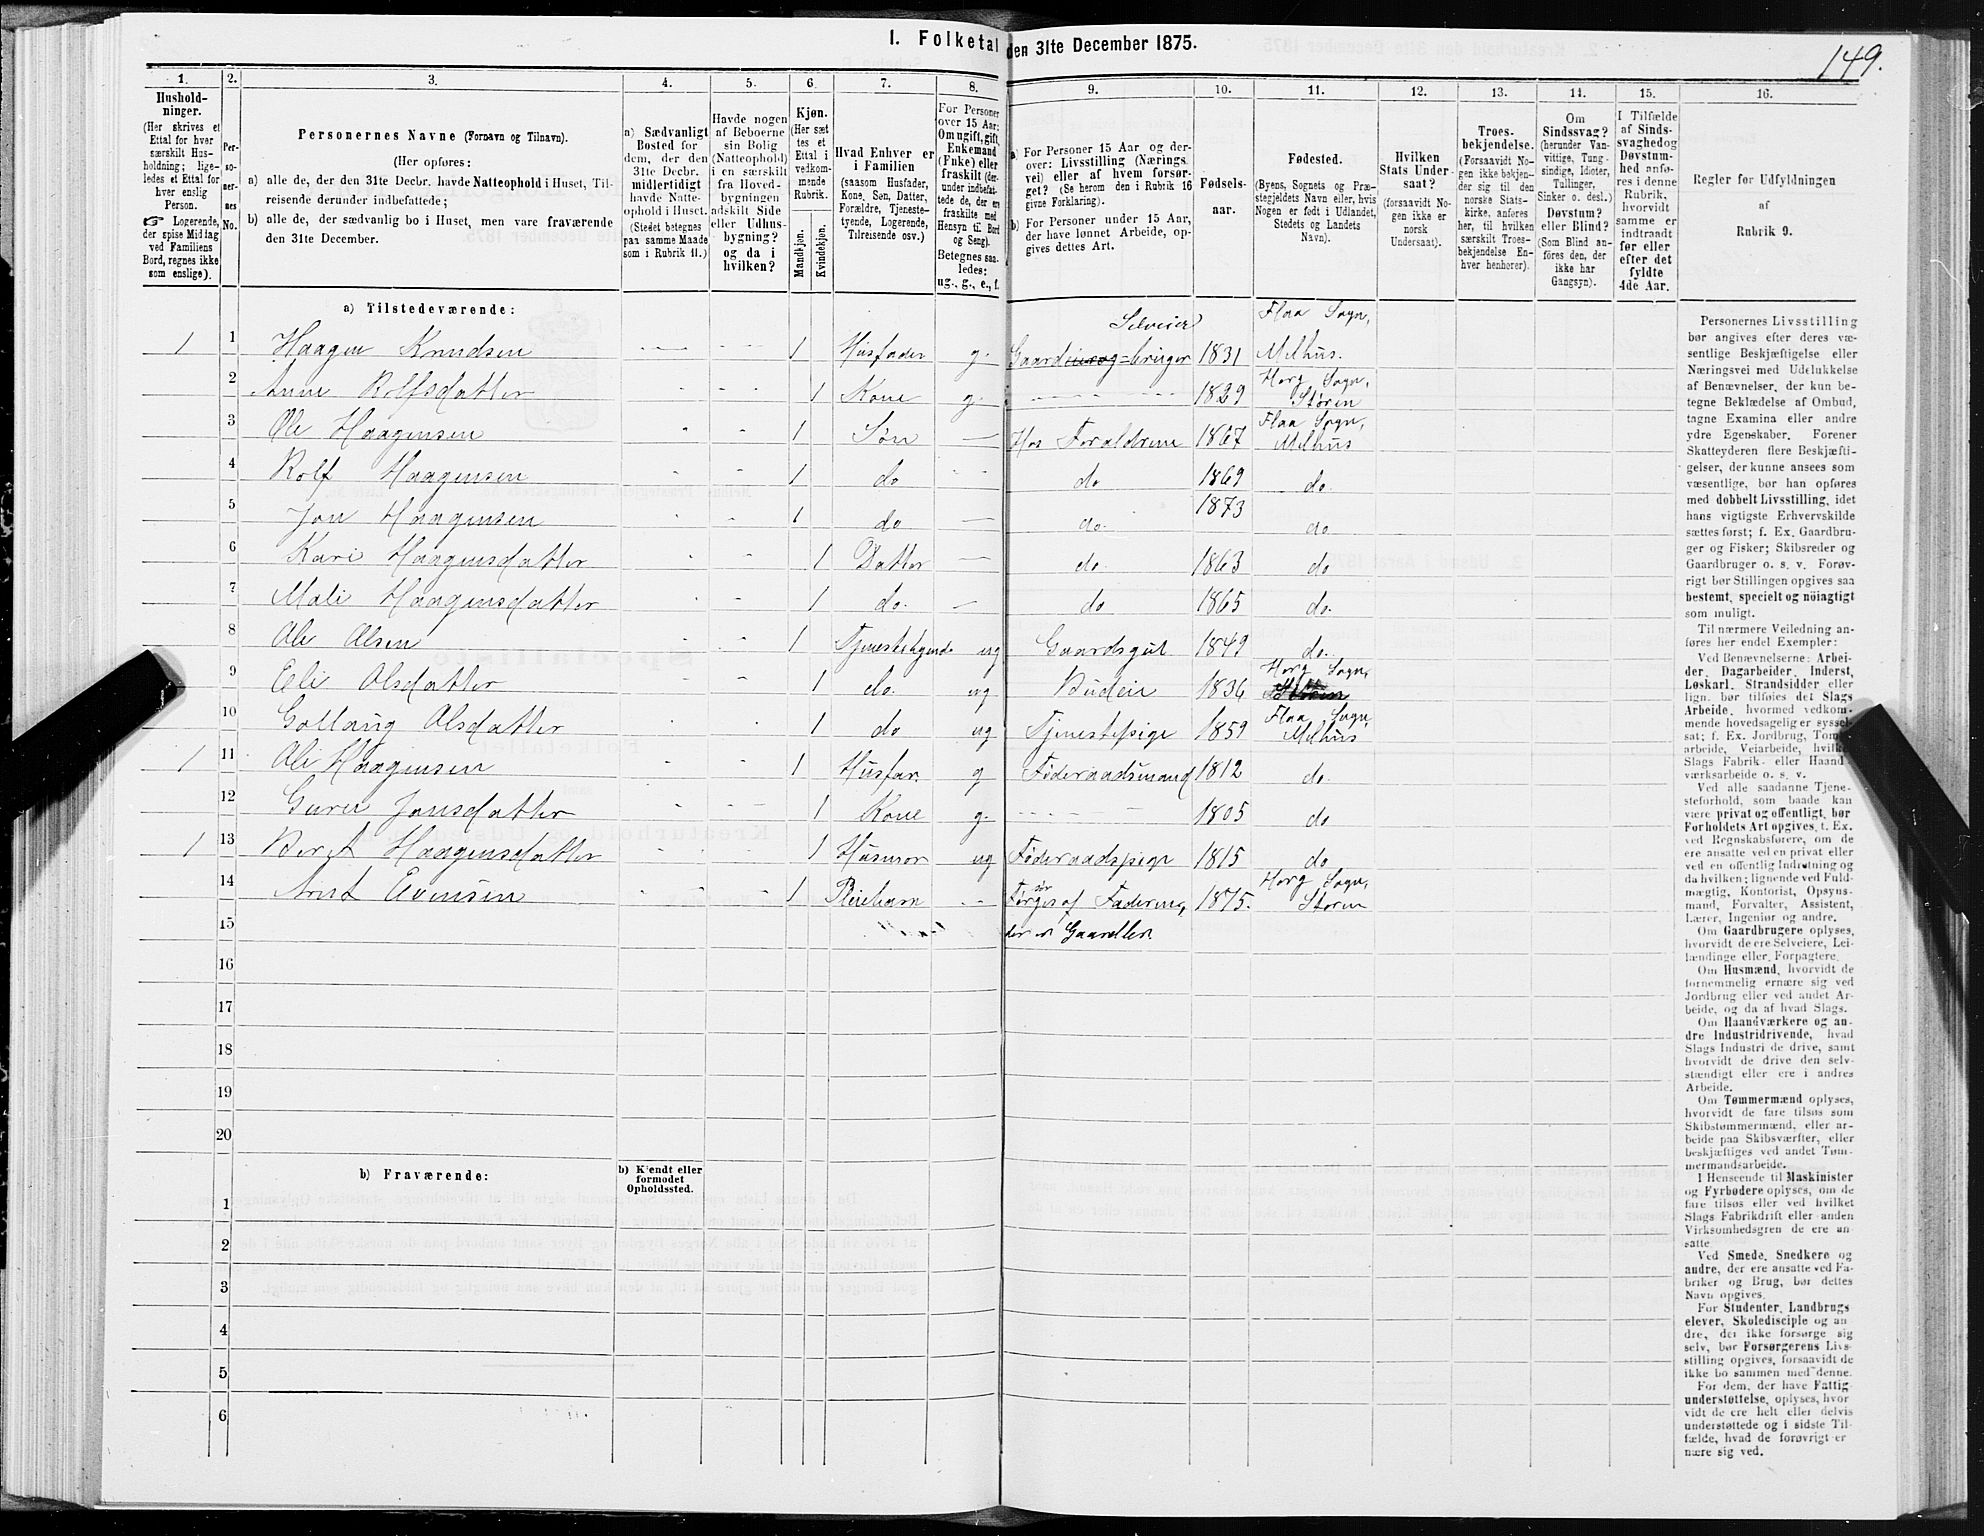 I. Folketal den 31te December 1875.
149.
1. 2. 3. 4. 5. 6. 7. 8. 9. 10. 11. 12. 13. 14. 15. 16.
Hushold-
ninger.
(Her skrives et
Ettal for hver
særskilt Hus-
holdning; lige-
ledes et Ettal for
hver enslig
Person.
☞ Logerende,
der spise Middag
ved Familiens
Bord, regnes ikke
som enslige).
Per-
so-
ner-
nes
No.
Personernes Navne (Fornavn og Tilnavn).
(Her opføres:
a) alle de, der den 31te Decbr. havde Natteophold i Huset, Til-
reisende derunder indbefattede;
b) alle de, der sædvanlig bo i Huset, men vare fraværende
den 31te December.
a) Sædvanligt
Bosted for
dem, der den
31te Decbr.
midlertidigt
havde Natte-
ophold i Huset.
(Stedet betegnes
paa samme Maade
som i Rubrik 11.)
Havde nogen
af Beboerne
sin Bolig
(Natteophold)
i en særskilt
fra Hoved-
bygningen
adskilt Side
eller Udhus-
bygning?
og da i
hvilken?
Kjøn.
(Her sæt
tes et
Ettal i
vedkom-
mende
Rubrik.
Mandkjøn.
Kvindekjøn.
Hvad Enhver er
i Familien
(saasom Husfader,
Kone, Søn, Datter,
Forældre, Tjeneste-
tyende, Logerende,
Tilreisende osv.)
For Personer
over 15 Aar:
Om ugift, gift,
Enkemand
(Enke) eller
fraskilt (der-
under indbefat-
tede de, der ere
fraskilte med
Hensyn til Bord
og Seng).
Betegnes saa-
ledes:
ug., g., e., f.
a) For Personer 15 Aar og der-
over: Livsstilling (Nærings-
vei) eller af hvem forsør-
get? (Se herom den i Rubrik 16
givne Forklaring).
b) For Personer under 15 Aar,
der have lønnet Arbeide, op-
gives dettes Art.
Fødsels-
aar.
Fødested.
(Byens, Sognets og Præ-
stegjeldets Navn eller, hvis
Nogen er født i Udlandet,
Stedets og Landets
Navn).
Hvilken
Stats Under-
saat?
(forsaavidt No-
gen ikke er
norsk
Undersaat).
Troes-
bekjendelse.
(Forsaavidt No-
gen ikke bekjen-
der sig til den
norske Stats-
kirke, anføres
her, til hvilken
særskilt Troes-
bekjendelse En-
hver henhører).
Om
Sindssvag?
(herunder Van-
vittige, Tung-
sindige, Idioter,
Tullinger,
Sinker o. desl.)
Døvstum?
eller Blind?
(Som Blind an-
føres den, der
ikke har
Gangsyn).
I Tilfælde
af Sinds-
svaghed og
Døvstum-
hed anfø-
res i denne
Rubrik,
hvorvidt
samme er
indtraadt
før eller
efter det
fyldte
4de Aar.
Regler for Udfyldningen
af
Rubrik 9.
a) Tilstedeværende:
1 1 Haagen Knudsen 1 Husfader g. Selveier Gaard-bruger 1831 Flaa Sogn, Melhus.
2 Anne Rolfsdatter 1 Kone g. 1829 Horg Sogn, Støren
3 Ole Haagensen 1 Søn — Hos Forældrene 1867 Flaa Sogn, Melhus
4 Rolf Haagensen 1 do do 1869 do.
5 Jon Haagensen 1 do — do. 1873 do
6 Kari Haagensdatter 1 Datter — do 1863 do
7 Mali Haagensdatter 1 do. — do 1865 do.
8 Ole Olsen 1 Tjenestetyende ug Gaardsgut 1849 do.
9 Eli Olsdatter 1 do. ug Budeie 1836 Horg Sogn, Støren
10 Gollaug Olsdatter 1 do ug Tjenestepige 1859 Flaa Sogn Melhus
1 11 Ole Haagensen 1 Husfar. g Føderaadsmand 1812 do.
12 Guru Jonsdatter 1 Kone g. 1805 do
1 13 Berit Haagensdatter 1 Husmor ug Føderaadspige 1815 do
14 Arnt Evensen 1 Pleiebarn Forsørges af Faderen, 1875. Horg Sogn, Støren
15 der er Gaardbr.
16
17
18
19
20
b) Fraværende:
b) Kjendt eller
formodet
Opholdssted.
1
2
3
4
5
6
Personernes Livsstilling
bør angives efter deres væ-
sentlige Beskjæftigelse eller
Næringsvei med Udelukkelse
af Benævnelser, der kun be-
tegne Beklædelse af Ombud,
tagne Examina eller andre
ydre Egenskaber. Forener
Skatteyderen flere Beskjæfti-
gelser, der kunne ansees som
væsentlige, bør han opføres
med dobbelt Livsstilling, idet
hans vigtigste Erhvervskilde
sættes først; f. Ex. Gaardbru-
ger og Fisker; Skibsreder og
Gaardbruger o. s. v. Forøv-
rigt bør Stillingen opgives saa
bestemt, specielt og nöiagtigt
som muligt.
Til nærmere Veiledning an-
føres her endel Exempler:
Ved Benævnelserne: Arbei-
der, Dagarbeider, Inderst,
Løskarl, Strandsidder eller
lign. bør tilføies det Slags
Arbeide, hvormed vedkom-
mende hovedsagelig er syssel-
sat; f. Ex. Jordbrug, Tom
arbeide, Veiarbeide, hvilke
Slags Fabrik- eller Haand
værksarbeide o. s. v.
Ved alle saadanne Tjene-
steforhold, som baade kan
være privat og offentligt, bør
Forholdets Art opgives, t. Ex.
ved Regnskabsførere, om de
ere ansatte ved en privat eller
ved en offentlig Indretning og
da hvilken; lignende ved Fuld-
mægtig, Kontorist, Opsyns-
mand, Forvalter, Assistent,
Lærer, Ingeniør og andre.
Om Gaardbrugere oplyses,
hvorvidt de ere Selveiere, Lei-
lændinge eller Forpagtere.
Om Husmænd, hvorvidt de
fornemmelig ernære sig ved
Jordbrug eller ved andet Ar-
beide, og da af hvad Slags.
Om Haandværkere og an-
dre Industridrivende, hvad
Slags Industri de drive, samt
hvorvidt de drive den selv-
stændigt eller ere i andres
Arbeide.
Om Tømmermænd oplyses,
hvorvidt de fare tilsøs som
Skibstømmermænd, eller ar-
beide paa Skibsværfter, eller
beskjæftiges ved andet Tøm-
mermandsarbeide.
I Henseende til Maskinister
og Fyrbødere oplyses, om de
fare tilsøs eller ved hvilket
Slags Fabrikdrift eller anden
Virksomhedsgren de ere an-
satte
Ved Smede, Snedkere og
andre, der ere ansatte ved Fa-
briker og Brug, bør dettes
Navn opgives.
For Studenter, Landbrugs
elever, Skoledisciple og an
dre, der ikke forsørge sig
selv, bør Forsørgerens Livs-
stilling opgives, forsaavidt de
ikke bo sammen med denne.
For dem, der have Fattig-
understøttelse, oplyses, hvor
vidt de ere helt eller delvis
understøttede og i sidste Til-
fælde, hvad de forøvrigt er
nære sig ved.